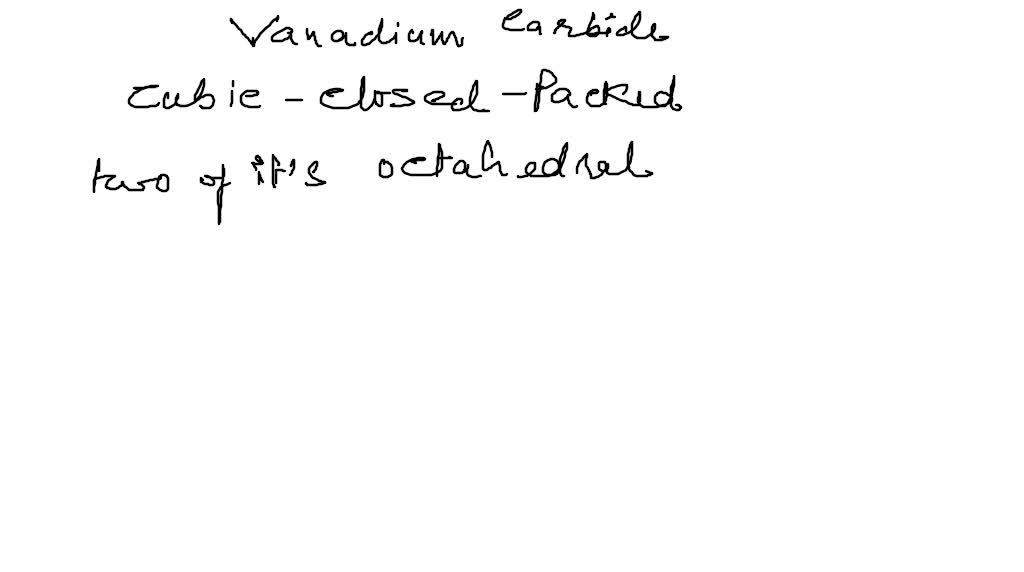 Vanadium Carbide
Cubic - closed - Packed
two of it's octahedral